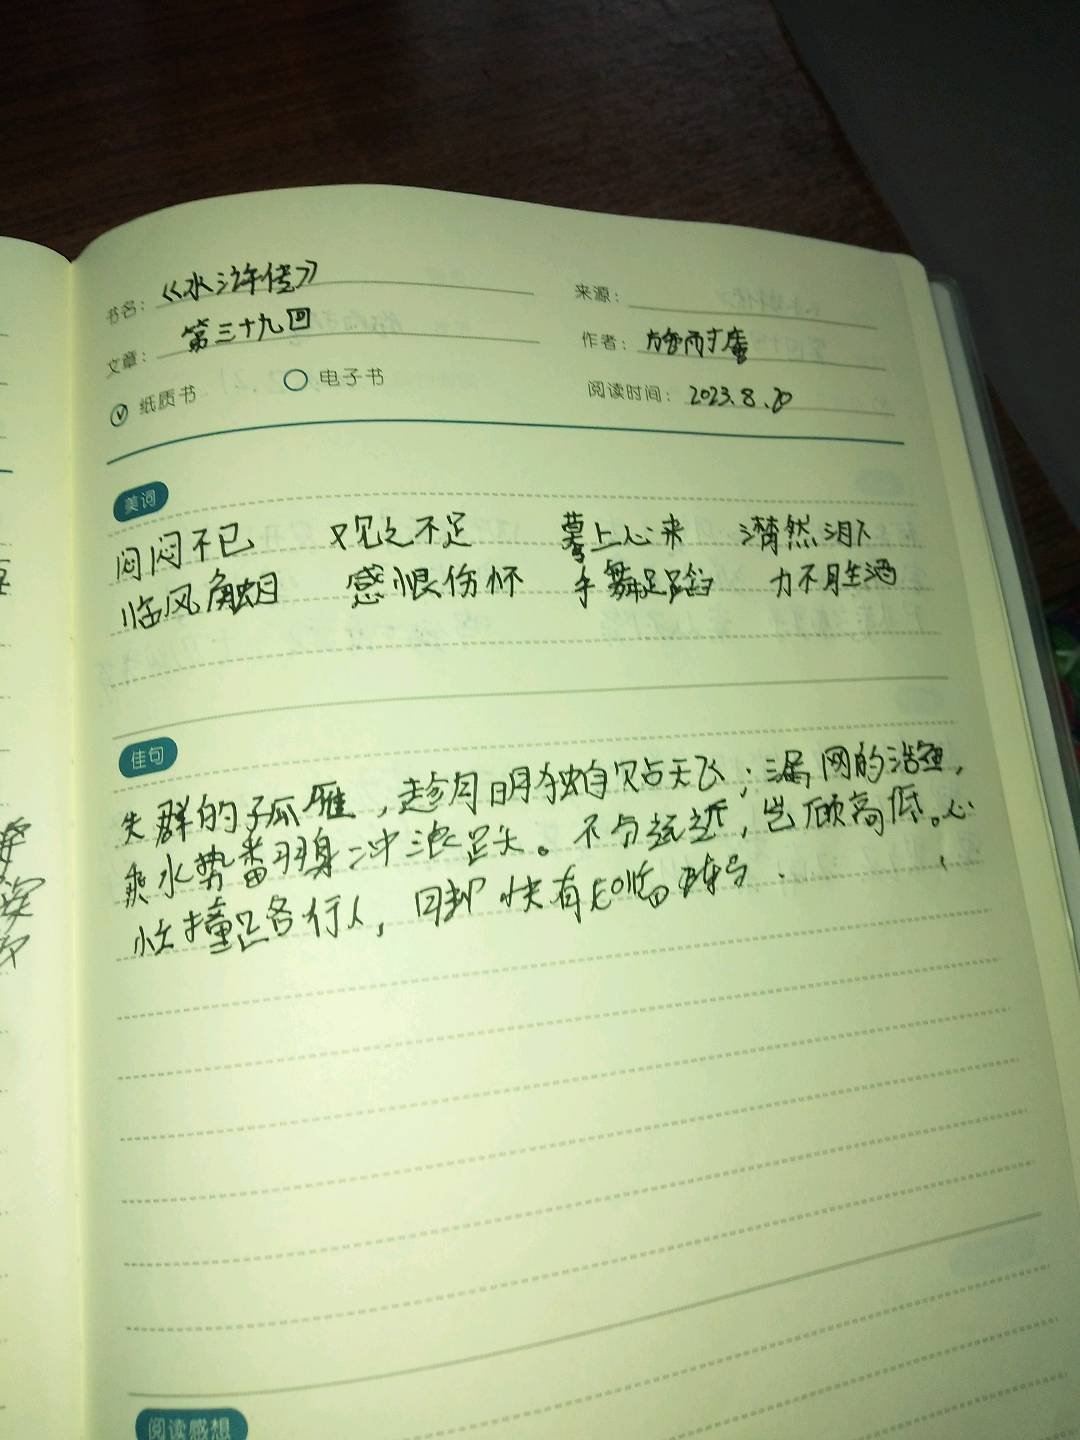 书名：《水浒传》
来源：
文章：第三十九回
作者：施耐庵
纸质书 电子书
阅读时间：2023.8.20
美词
闷闷不已 观之不足 蓦上心来 潸然泪下
临风触目 感恨伤怀 手舞足蹈 力不胜酒
佳句
失群的孤雁，趁月明独自贴天飞；漏网的活鱼，
乘水势番羽身冲浪跃。不分远近，岂顾高低。心
忙撞
行人，
快有
临阵
阅读感想